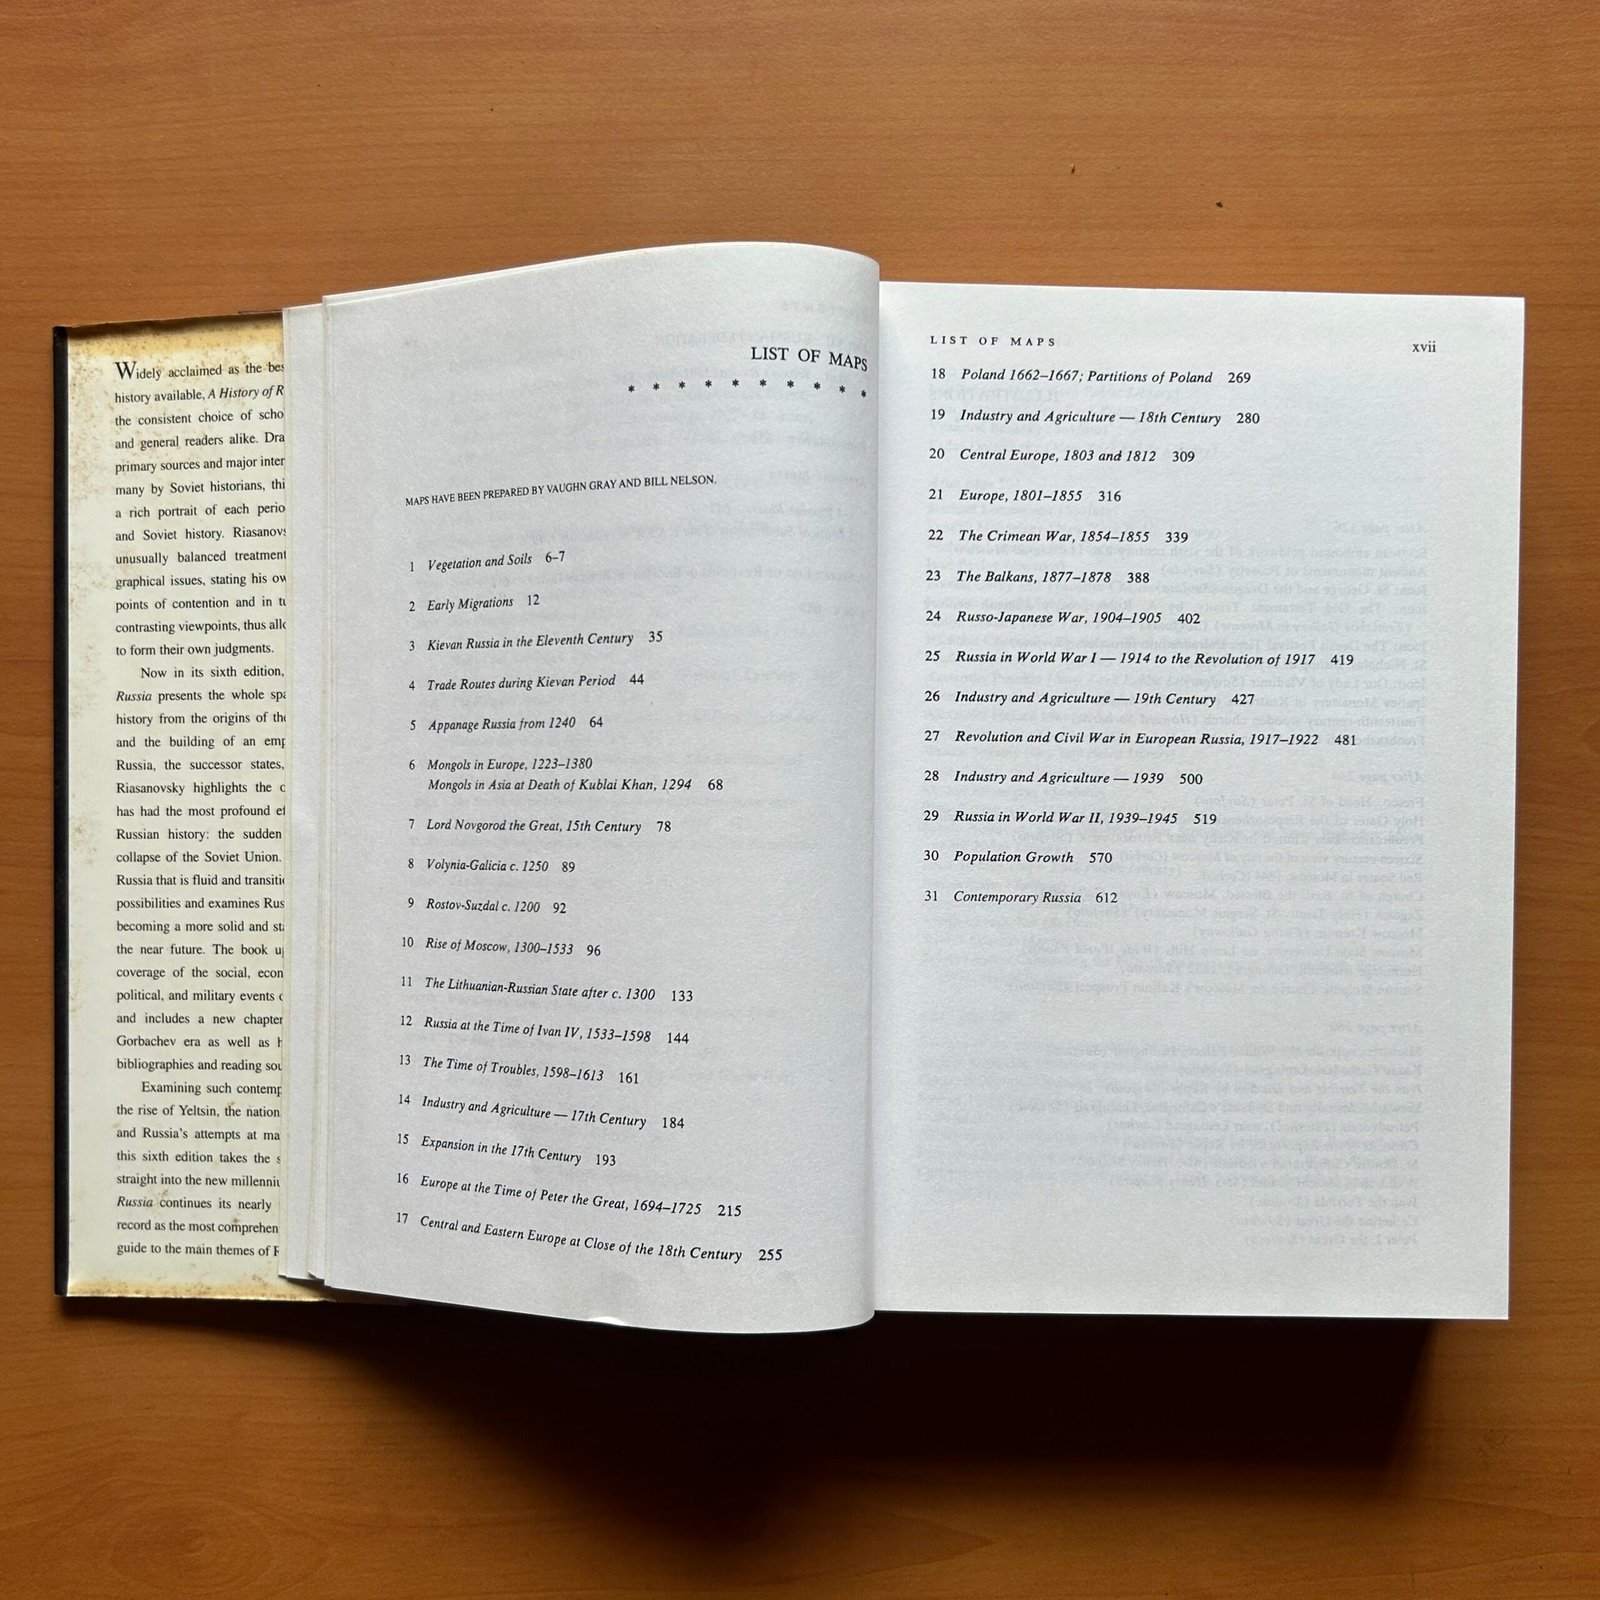 Widely acclaimed as the bes
history available, A History of R
the consistent choice of scho
and general readers alike. Dra
primary sources and major inter
many by Soviet historians, thi
a rich portrait of each perio
and Soviet history. Riasanovs
unusually balanced treatment
graphical issues, stating his ow
points of contention and in tu
contrasting viewpoints, thus allo
to form their own judgments.
Now in its sixth edition,
Russia presents the whole spa
history from the origins of the
and the building of an emp
Russia, the successor states,
Riasanovsky highlights the c
has had the most profound ef
Russian history: the sudden
collapse of the Soviet Union.
Russia that is fluid and transitic
possibilities and examines Rus
becoming a more solid and sta
the near future. The book up
coverage of the social, econ
political, and military events c
and includes a new chapter
Gorbachev era as well as
bibliographies and reading sou
Examining such contemp
the rise of Yeltsin, the nation
and Russia's attempts at ma
this sixth edition takes the s
straight into the new millenniu
Russia continues its nearly
record as the most comprehen
guide to the main themes of
LIST OF MAPS
* * * * * * * * * *
MAPS HAVE BEEN PREPARED BY VAUGHN GRAY AND BILL NELSON.
1 Vegetation and Soils 6–7
2 Early Migrations 12
3 Kievan Russia in the Eleventh Century 35
4 Trade Routes during Kievan Period 44
5 Appanage Russia from 1240 64
6 Mongols in Europe, 1223–1380
Mongols in Asia at Death of Kublai Khan, 1294 68
7 Lord Novgorod the Great, 15th Century 78
8 Volynia-Galicia c. 1250 89
9 Rostov-Suzdal c. 1200 92
10 Rise of Moscow, 1300–1533 96
11 The Lithuanian-Russian State after c. 1300 133
12 Russia at the Time of Ivan IV, 1533–1598 144
13 The Time of Troubles, 1598–1613 161
14 Industry and Agriculture — 17th Century 184
15 Expansion in the 17th Century 193
16 Europe at the Time of Peter the Great, 1694–1725 215
17 Central and Eastern Europe at Close of the 18th Century 255
LIST OF MAPS xvii
18 Poland 1662–1667; Partitions of Poland 269
19 Industry and Agriculture — 18th Century 280
20 Central Europe, 1803 and 1812 309
21 Europe, 1801–1855 316
22 The Crimean War, 1854–1855 339
23 The Balkans, 1877–1878 388
24 Russo-Japanese War, 1904–1905 402
25 Russia in World War I — 1914 to the Revolution of 1917 419
26 Industry and Agriculture — 19th Century 427
27 Revolution and Civil War in European Russia, 1917–1922 481
28 Industry and Agriculture — 1939 500
29 Russia in World War II, 1939–1945 519
30 Population Growth 570
31 Contemporary Russia 612